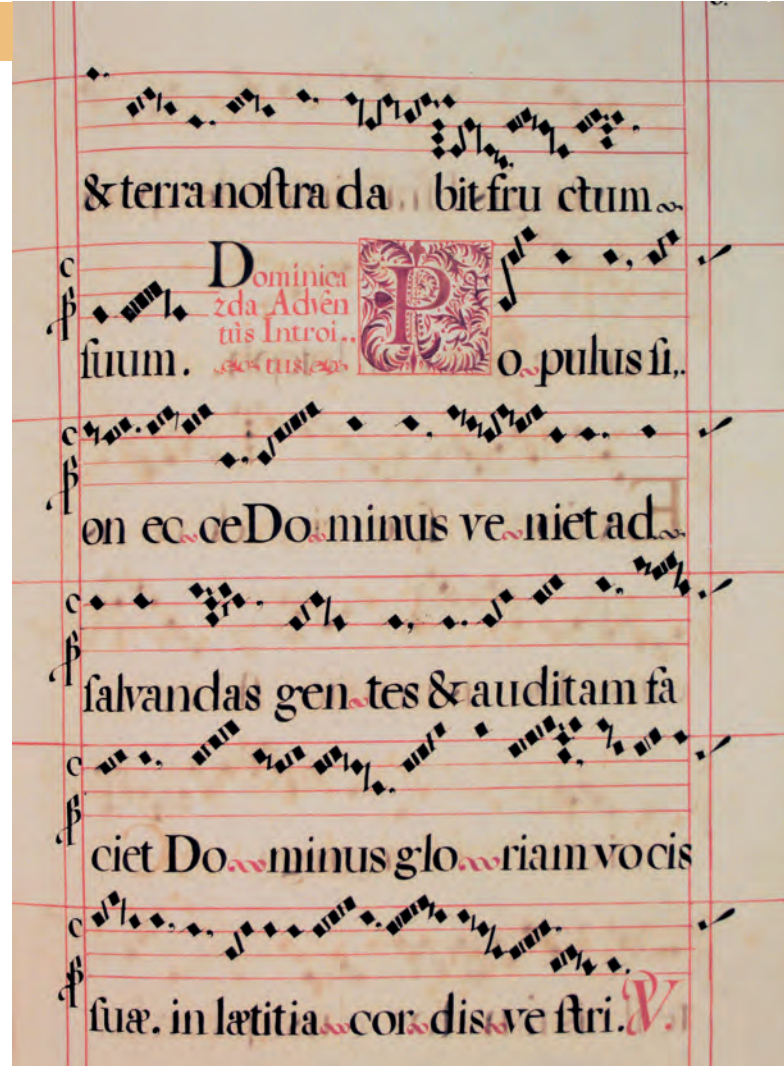 & terra noſtra da bit fru ctum
ſuum. Dominica
2da Advên
tûs Introi..
tus
P o pulus ſi,.
on ec ce Do minus ve niet ad
ſalvandas gen tes & auditam fa
ciet Do minus glo riam vocis
ſuæ. in lætitia cor dis ve ſtri. V.